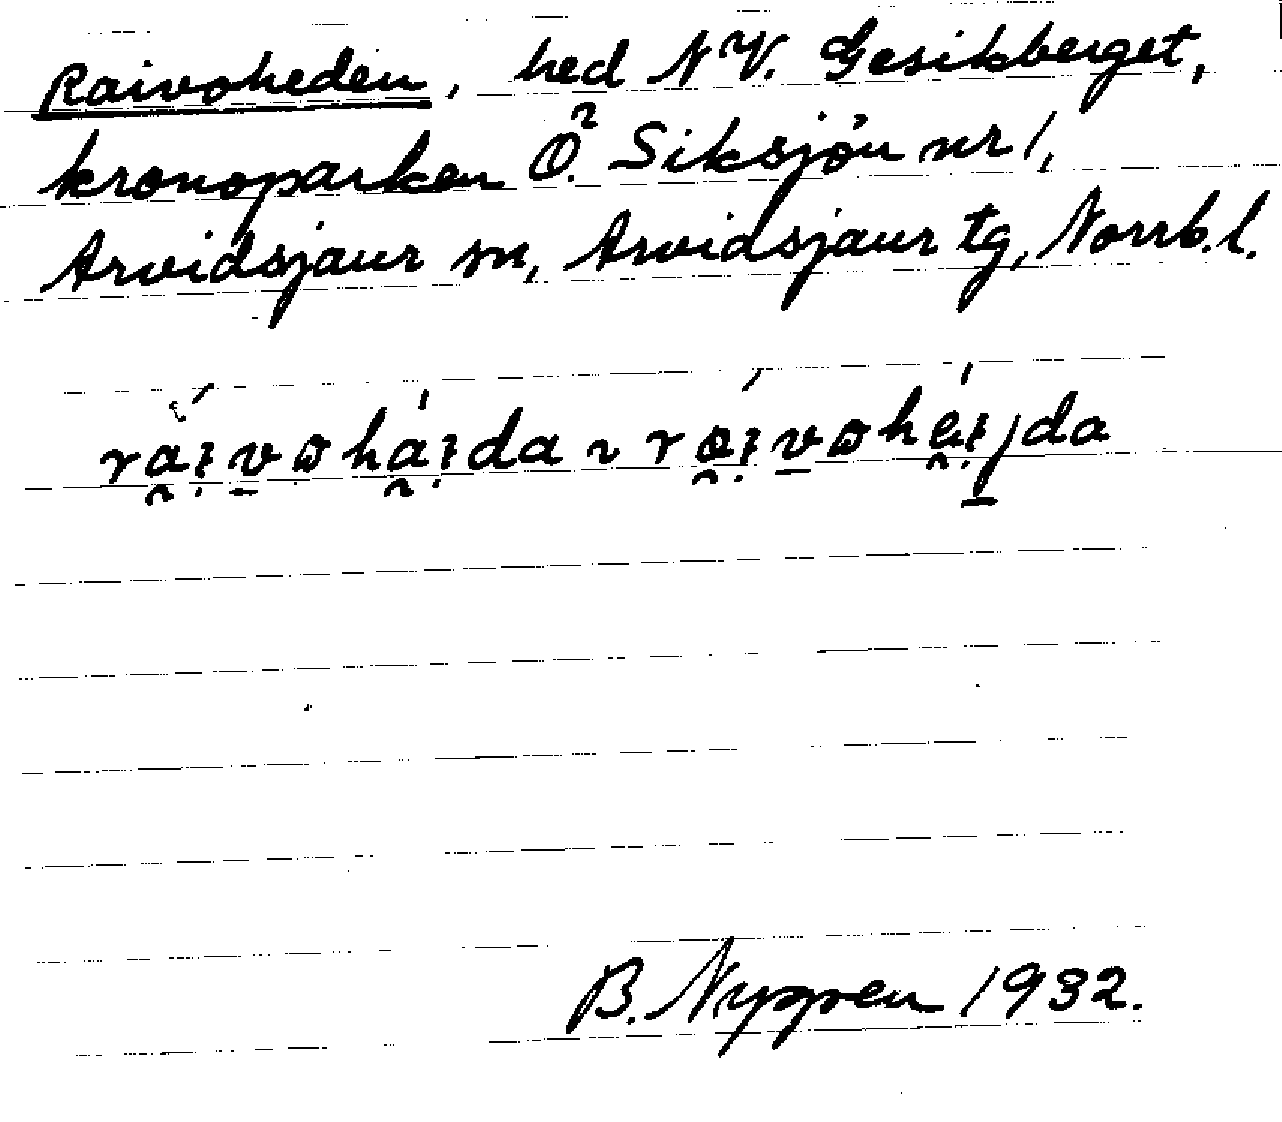 Raivoheden, hed NV. Gesikberget,
kronoparken Ö. Siksjön nr 1,
Arvidsjaur sn, Arvidsjaur tg, Norrb.l.
B. Nygren 1932.